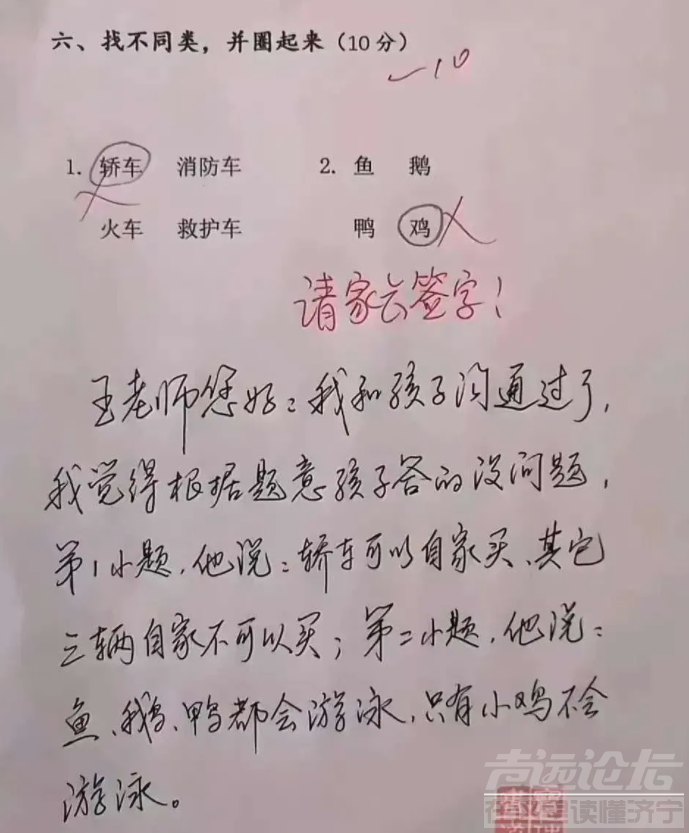 六、找不同类，并圈起来（10分）
-10
1. 轿车 消防车 2. 鱼 鹅
火车 救护车 鸭 鸡
请家长签字！
王老师您好：我和孩子沟通过了，
我觉得根据题意孩子答的没问题，
第1小题，他说：轿车可以自家买、其它
三辆自家不可以买；第二小题，他说：
鱼、鹅、鸭都会游泳，只有小鸡不会
游泳。
声远论坛
在这里读懂济宁